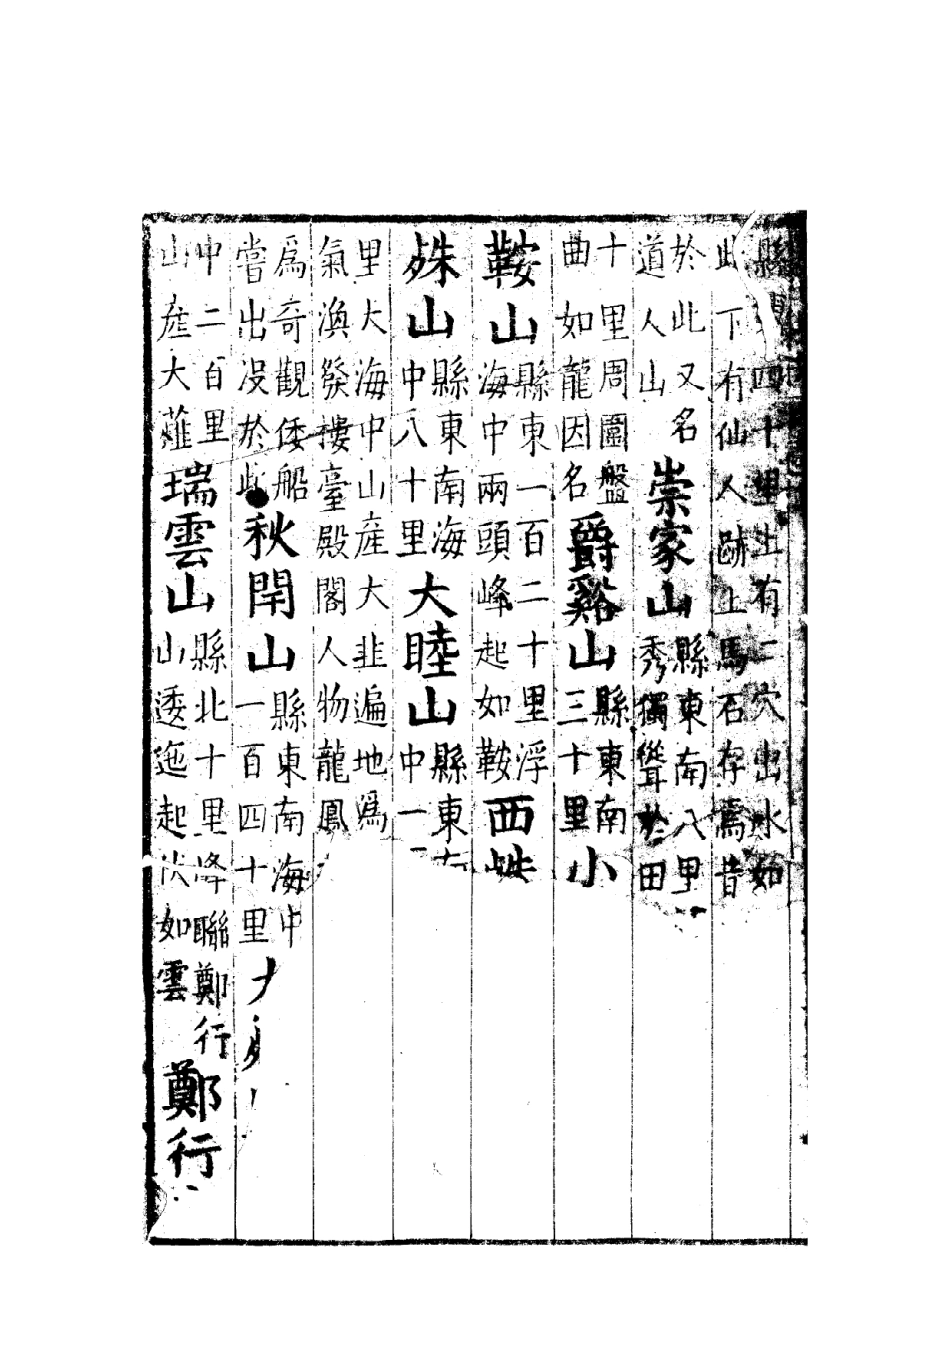 縣東四十里上有二穴出水如此下有仙人跡上馬石存焉昔
於此又名道人山崇家山縣東南八里秀獨聳於田
十里周圍盤曲如龍因名爵谿山縣東南三十里小
鞍山縣東一百二十里浮海中兩頭峰起如鞍西
殊山縣東南海中八十里大睦山縣東中一
里大海中山産大韭遍地爲氣渙發樓臺殿閣人物龍鳳
爲奇觀倭船嘗出没於此秋閈山縣東南海中一百四十里大
中二百里山産大薤瑞雲山縣北十里峰聯鄭行山逶迤起伏如雲鄭行